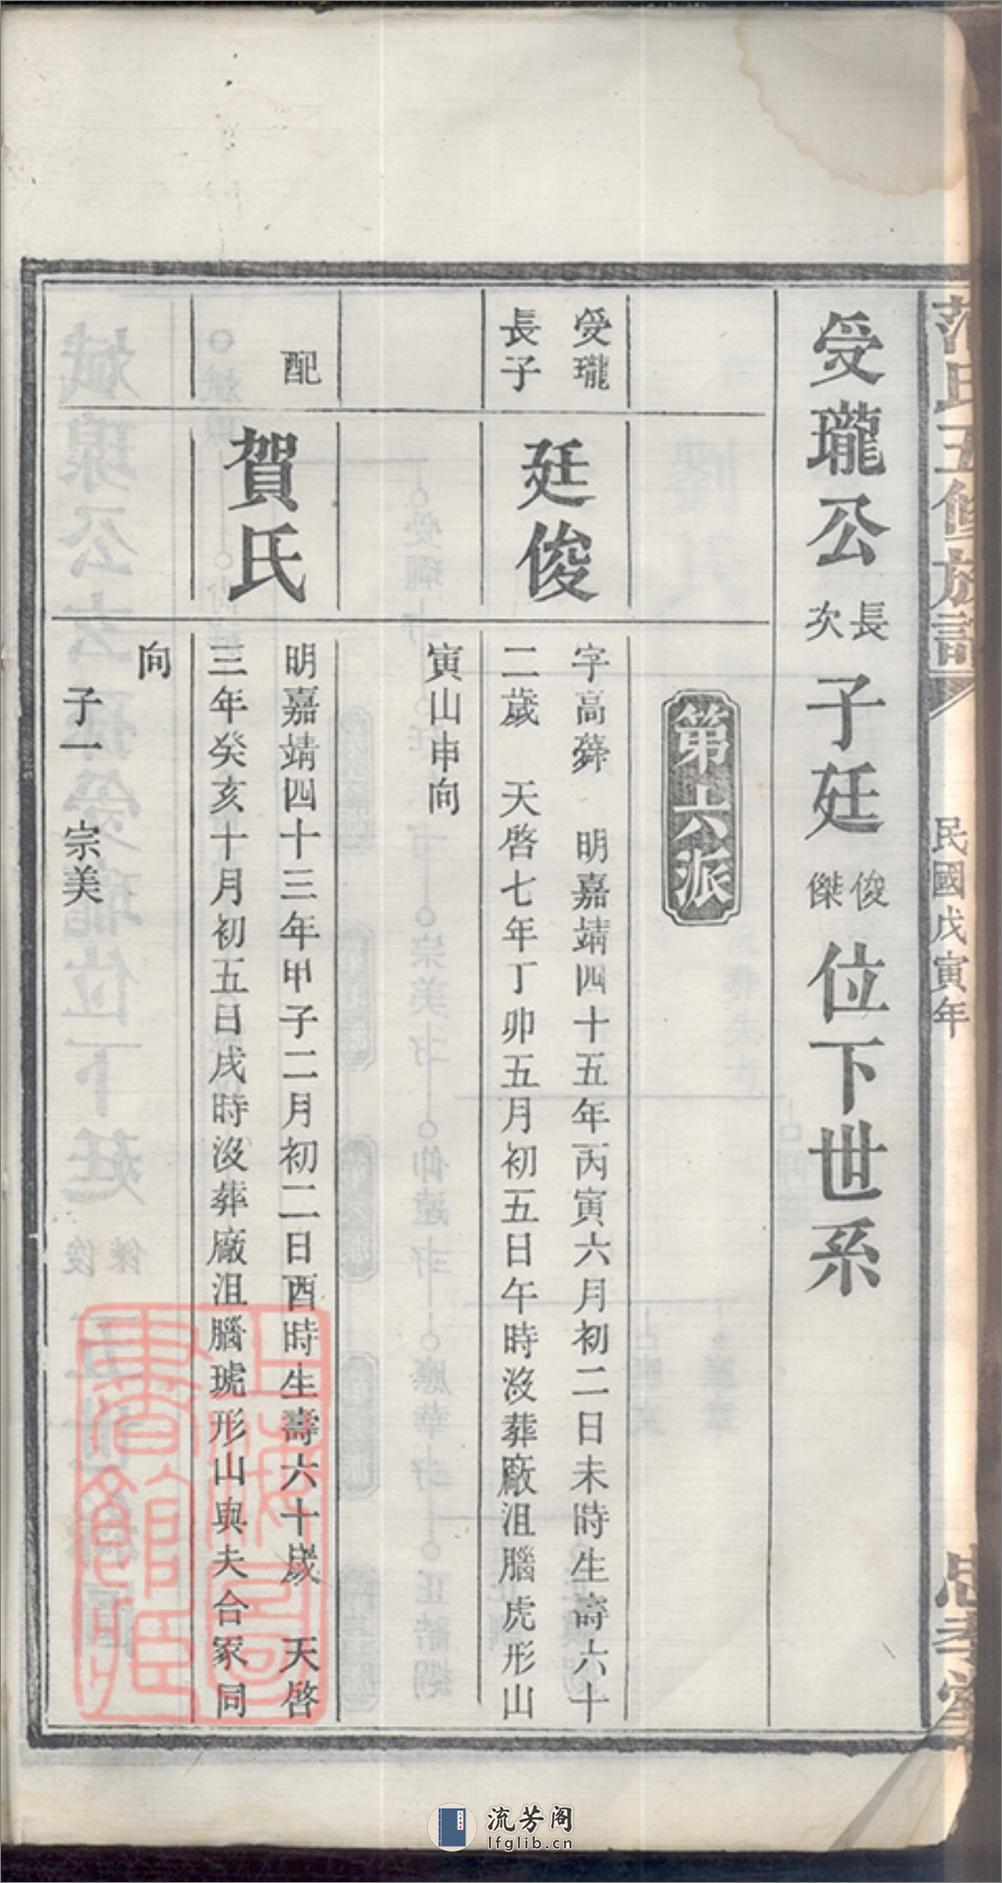 氏五修族譜
民國戊寅年
受瓏公長次子廷俊傑位下世系
第六派
受瓏
長子
廷俊
字高薢 明嘉靖四十五年丙寅六月初二日未時生壽六十
二歲 天啓七年丁卯五月初五日午時沒葬廠沮腦虎形山
寅山申向
配
賀氏
明嘉靖四十三年甲子二月初二日酉時生壽六十歲 天啓
三年癸亥十月初五日戌時沒葬廠沮腦琥形山與夫合冢同
向
子一 宗美
上海圖書館藏
流芳阁
lfglib.cn